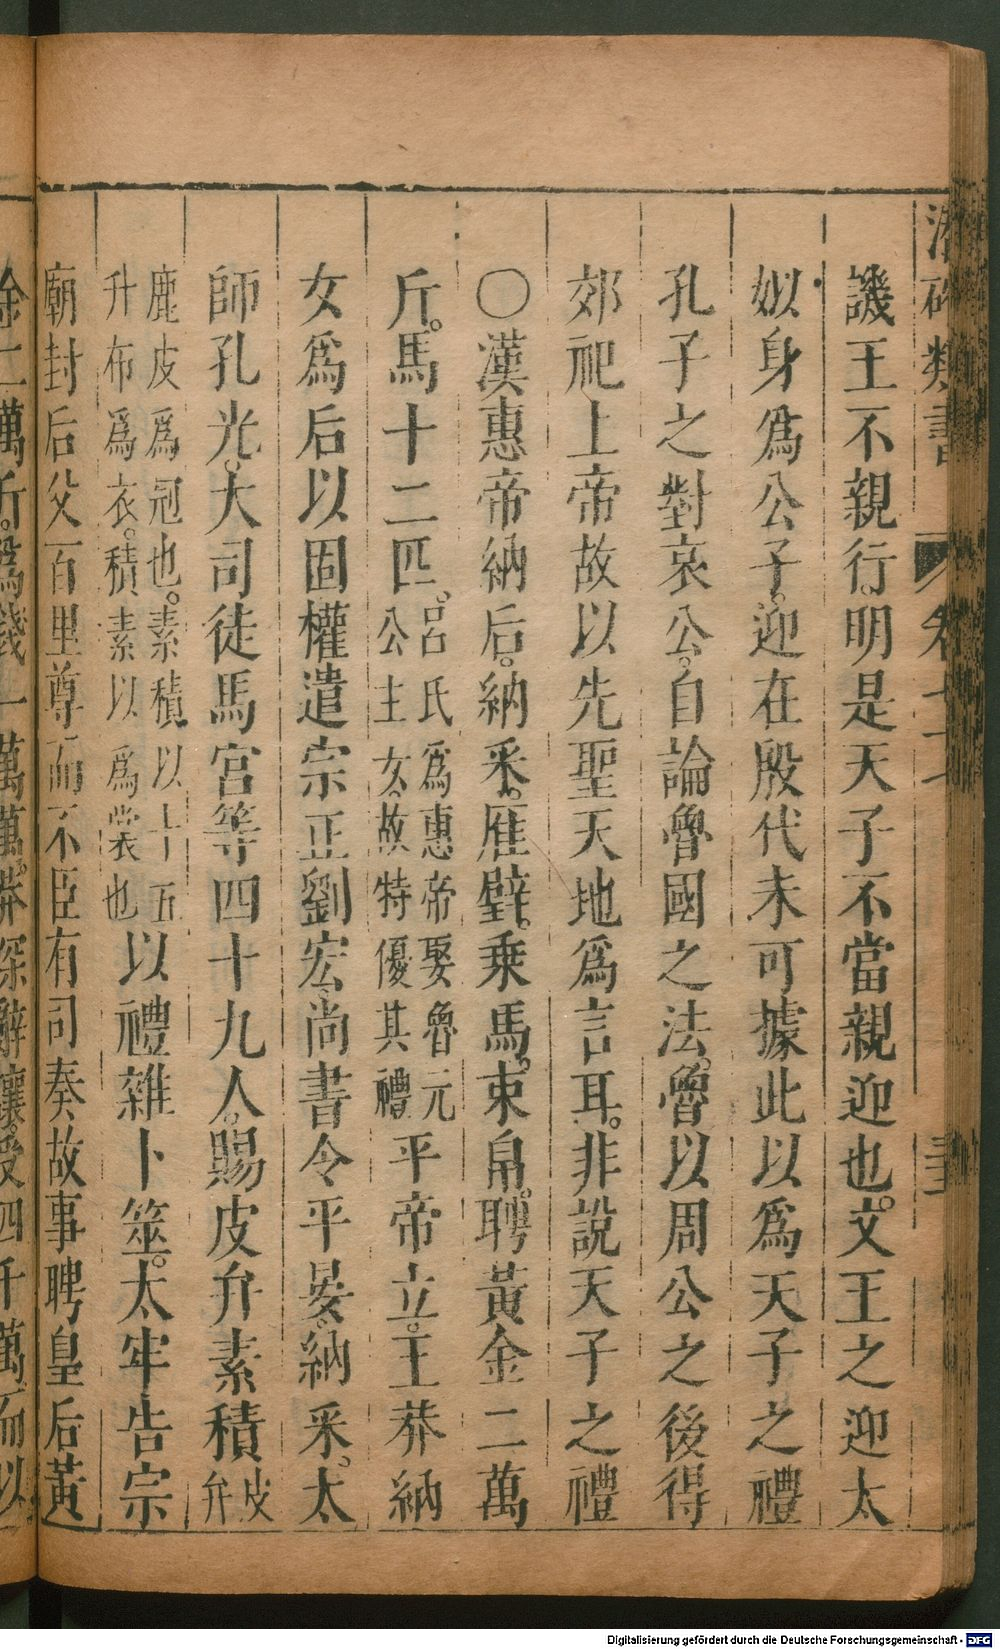 譏王不親行。明是天子不當親迎也。文王之迎太
姒身爲公子。迎在殷代未可據此以爲天子之禮
孔子之對哀公。自論魯國之法。魯以周公之後得
郊祀上帝故以先聖天地爲言耳。非說天子之禮
〇漢惠帝納后。納采。雁璧。乘馬。束帛。聘黃金二萬
斤。馬十二匹。呂氏爲惠帝娶魯元公主女。故特優其禮平帝立。王莽納
女爲后以固權遣宗正劉宏。尚書令平晏。納采。太
師孔光。大司徒馬宮等四十九人。賜皮弁素積皮弁
鹿皮爲冠也。素積以十五升布爲衣。積素以爲裳也以禮雜卜筮。太牢告宗
廟封后父百里尊而不臣有司奏故事聘皇后黃
金二萬斤。爲錢一萬萬。莽深辭讓。受四千萬而以
類書
卷
Digitalisierung gefördert durch die Deutsche Forschungsgemeinschaft - DFG